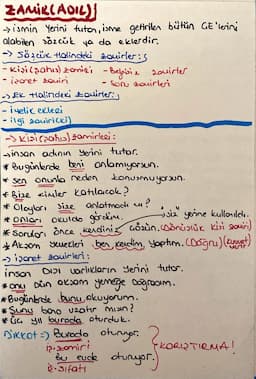 ZAMİR (ADIL)
→ismin yerini tutan, isme getirilen bütün ÇE'lerini
alabilen sözcük ya da eklerdir.
→ Sözcük Halindeki Zamirler:
- Kişi (şahıs) zamiri - Belgisiz zamirler
- işaret zamiri - Soru zamirleri
→ Ek Halindeki zamirler:
- iyelik ekleri
- ilgi zamiri(ki)
→ Kişi (şahıs) zamirleri:
→insan adının yerini tutar.
* Bugünlerde beni anlamıyorsun.
* sen onunla neden konuşmuyorsun.
* Bize kimler katılacak?
* Olayları size anlatmadı mı?
* Onları okulda gördüm. "siz" yerine kullanıldı.
* Soruları önce kendiniz çözün. (Dönüşlük kişi zamiri)
* Akşam yemekleri ben kendim yaptım. (Doğru) (kuvvet)
→ işaret zamirleri:
insan DIŞI varlıkların yerini tutar.
* onu dün akşam yemeğe doğradım.
* Bugünlerde bunu okuyorum.
* Şunu bana uzatır mısın?
* üç yıl burada oturduk.
DİKKAT → Burada oturuyor.
İş. zamiri KARIŞTIRMA!
bu evde oturuyor.
İş. sıfatı